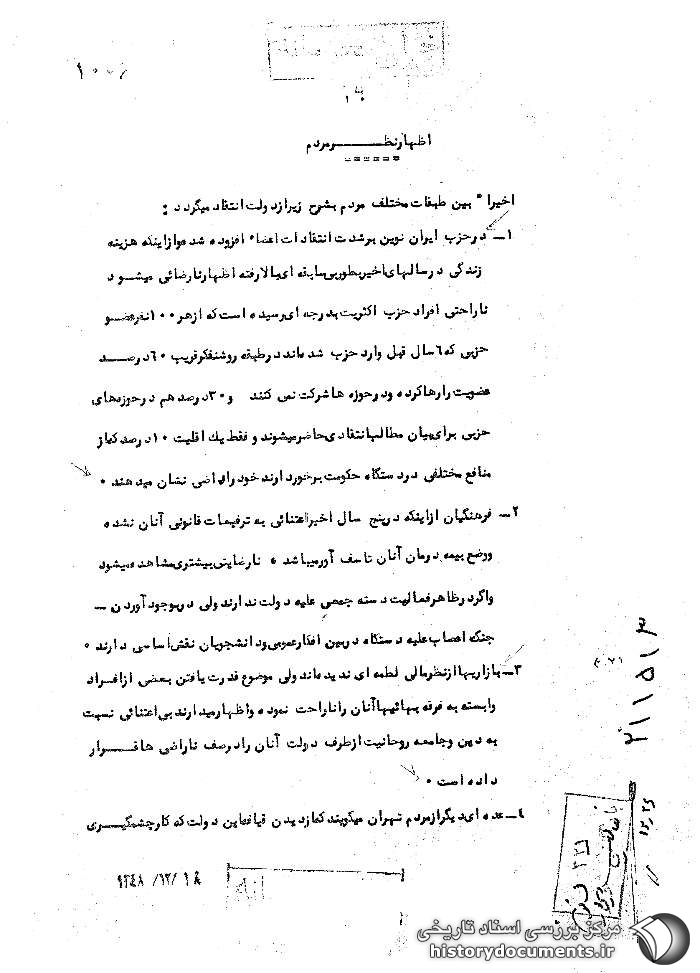 اظهارنظـــــرمردم
اخیرا" بین طبقات مختلف مردم بشرح زیر از دولت انتقاد میگردد :
۱ـ در حزب ایران نوین برشدت انتقادات اعضاء افزوده شده و از اینکه هزینه
زندگی در سالهای اخیر بطور بی سابقه ای بالا رفته اظهار نارضائی میشود
ناراحتی افراد حزب اکثریت بدرجه ای رسیده است که از هر ۱۰۰ نفر عضو
حزبی که ٦ سال قبل وارد حزب شده اند در طبقه روشنفکر قریب ٦۰ درصـــد
عضویت را رها کرده و در حوزه ها شرکت نمی کنند و ۳۰ درصد هم در حوزه های
حزبی برای بیان مطالب انتقادی حاضر میشوند و فقط یك اقلیت ۱۰ درصد که از
منافع مختلفی در دستگاه حکومت برخوردارند خود را راضی نشان میدهند ۰
۲ـ فرهنگیان از اینکه در پنج سال اخیر اعتنائی به ترفیعات قانونی آنان نشده
ووضع بیمه درمان آنان تاسف آور میباشد ۰ نارضایتی بیشتری مشاهده میشود
واگر در ظاهر فعالیت دسته جمعی علیه دولت ندارند ولی در بوجود آوردن ـ
جنگ اعصاب علیه دستگاه در بین افکار عمومی و دانشجویان نقش اساسی دارند ۰
۳ـ بازاریها از نظر مالی لطمه ای ندیده اند ولی موضوع قدرت یافتن بعضی از افراد
وابسته به فرقه بهائیها آنان را ناراحت نموده و اظهار میدارند بی اعتنائی نسبت
به دین و جامعه روحانیت از طرف دولت آنان را در صف ناراضی ها قـــرار
داده است ۰
٤ـ عده ای دیگر از مردم تهران میگویند که از دیدن قیافه این دولت که کار چشمگیـــری
۲۱۱۵۱۳
مرکز بررسی اسناد تاریخی
historydocuments.ir